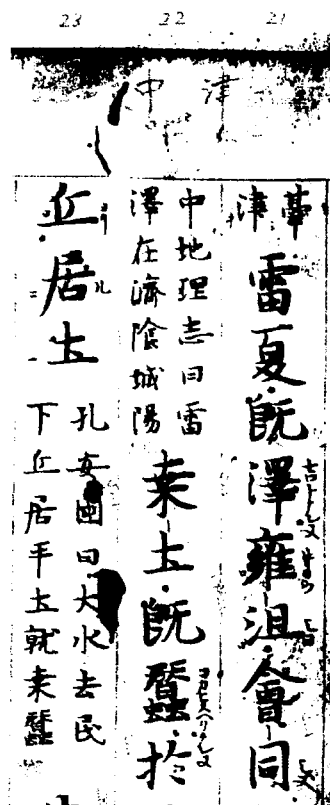 23 22 21
中 津
津
雷夏既澤雍沮會同
中地理志曰雷
澤在濟陰城陽
桒土既蠶於
丘居土
孔安國曰大水去民
下丘居平土就桒蠶